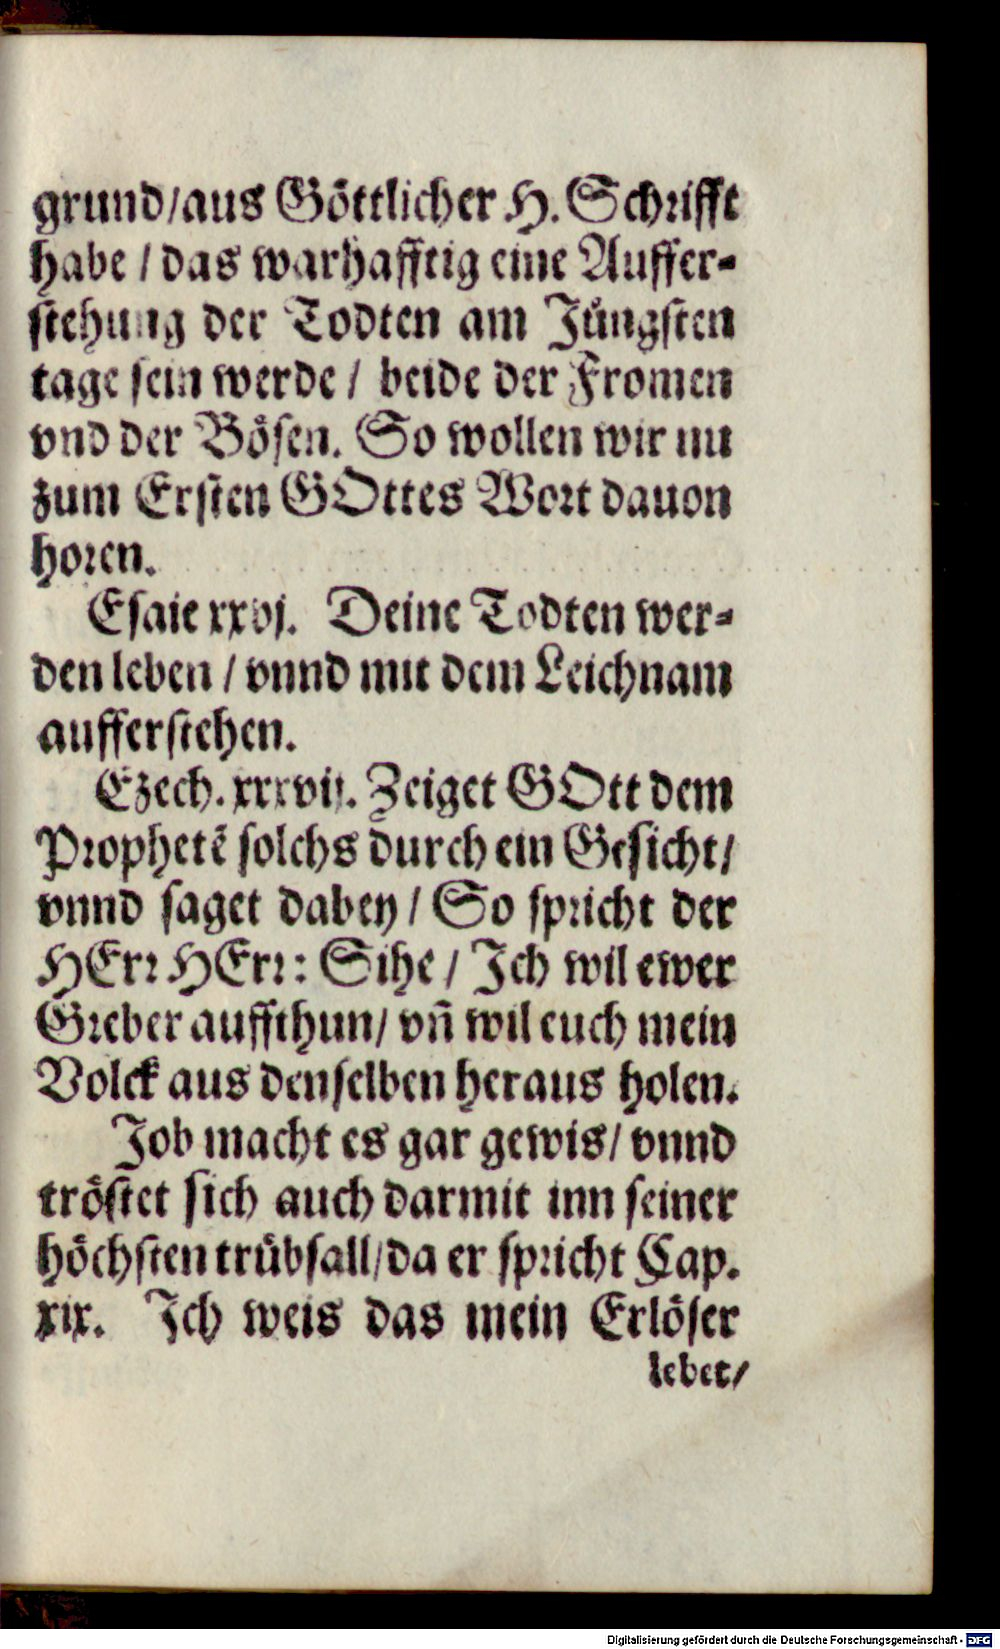 grund/aus Göttlicher H. Schrifft
habe / das warhafftig eine Auffer-
stehung der Todten am Jüngsten
tage sein werde / beide der Fromen
vnd der Bösen. So wollen wir nu
zum Ersten GOttes Wort dauon
horen.
Esaie xxvj. Deine Todten wer-
den leben / vnnd mit dem Leichnam
aufferstehen.
Ezech. xxxvij. Zeiget GOtt dem
Prophetẽ solchs durch ein Gesicht/
vnnd saget dabey / So spricht der
HErr HErr: Sihe / Ich wil ewer
Greber auffthun/ vñ wil euch mein
Volck aus denselben heraus holen.
Job macht es gar gewis/ vnnd
tröstet sich auch darmit inn seiner
höchsten trübsall/da er spricht Cap.
xix. Ich weis das mein Erlöser
lebet/
Digitalisierung gefördert durch die Deutsche Forschungsgemeinschaft - DFG